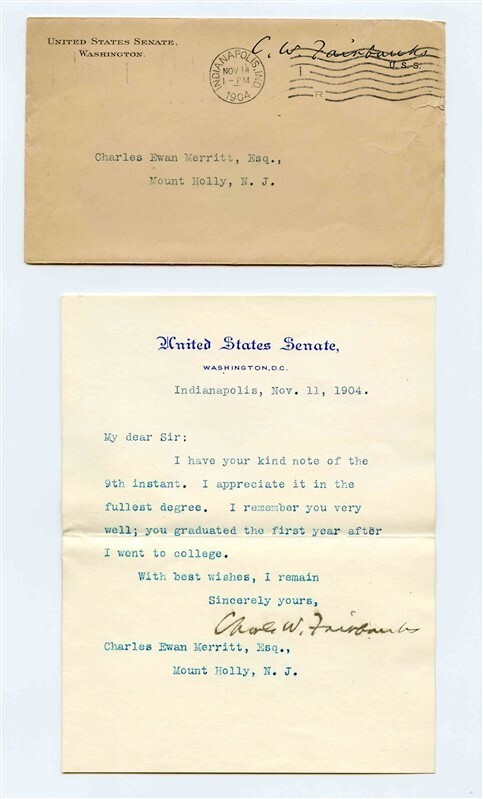 UNITED STATES SENATE,
WASHINGTON.
C. W. Fairbanks
U. S. S.
INDIANAPOLIS, IND.
NOV 14
1-PM
1904
I
R
Charles Ewan Merritt, Esq.,
Mount Holly, N. J.
United States Senate,
WASHINGTON, D.C.
Indianapolis, Nov. 11, 1904.
My dear Sir:
I have your kind note of the
9th instant. I appreciate it in the
fullest degree. I remember you very
well; you graduated the first year after
I went to college.
With best wishes, I remain
Sincerely yours,
Chas. W. Fairbanks
Charles Ewan Merritt, Esq.,
Mount Holly, N. J.